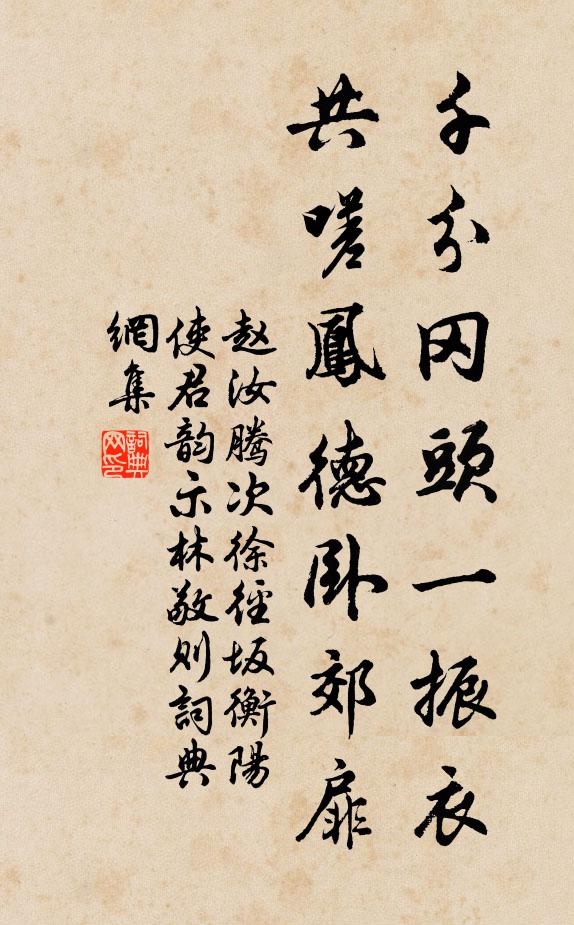 千分冈頭一振衣
共嗟鳳德卧郊扉
赵汝腾次徐徑坂衡陽
使君韵示林敬则詞典
網集
詞典
网印